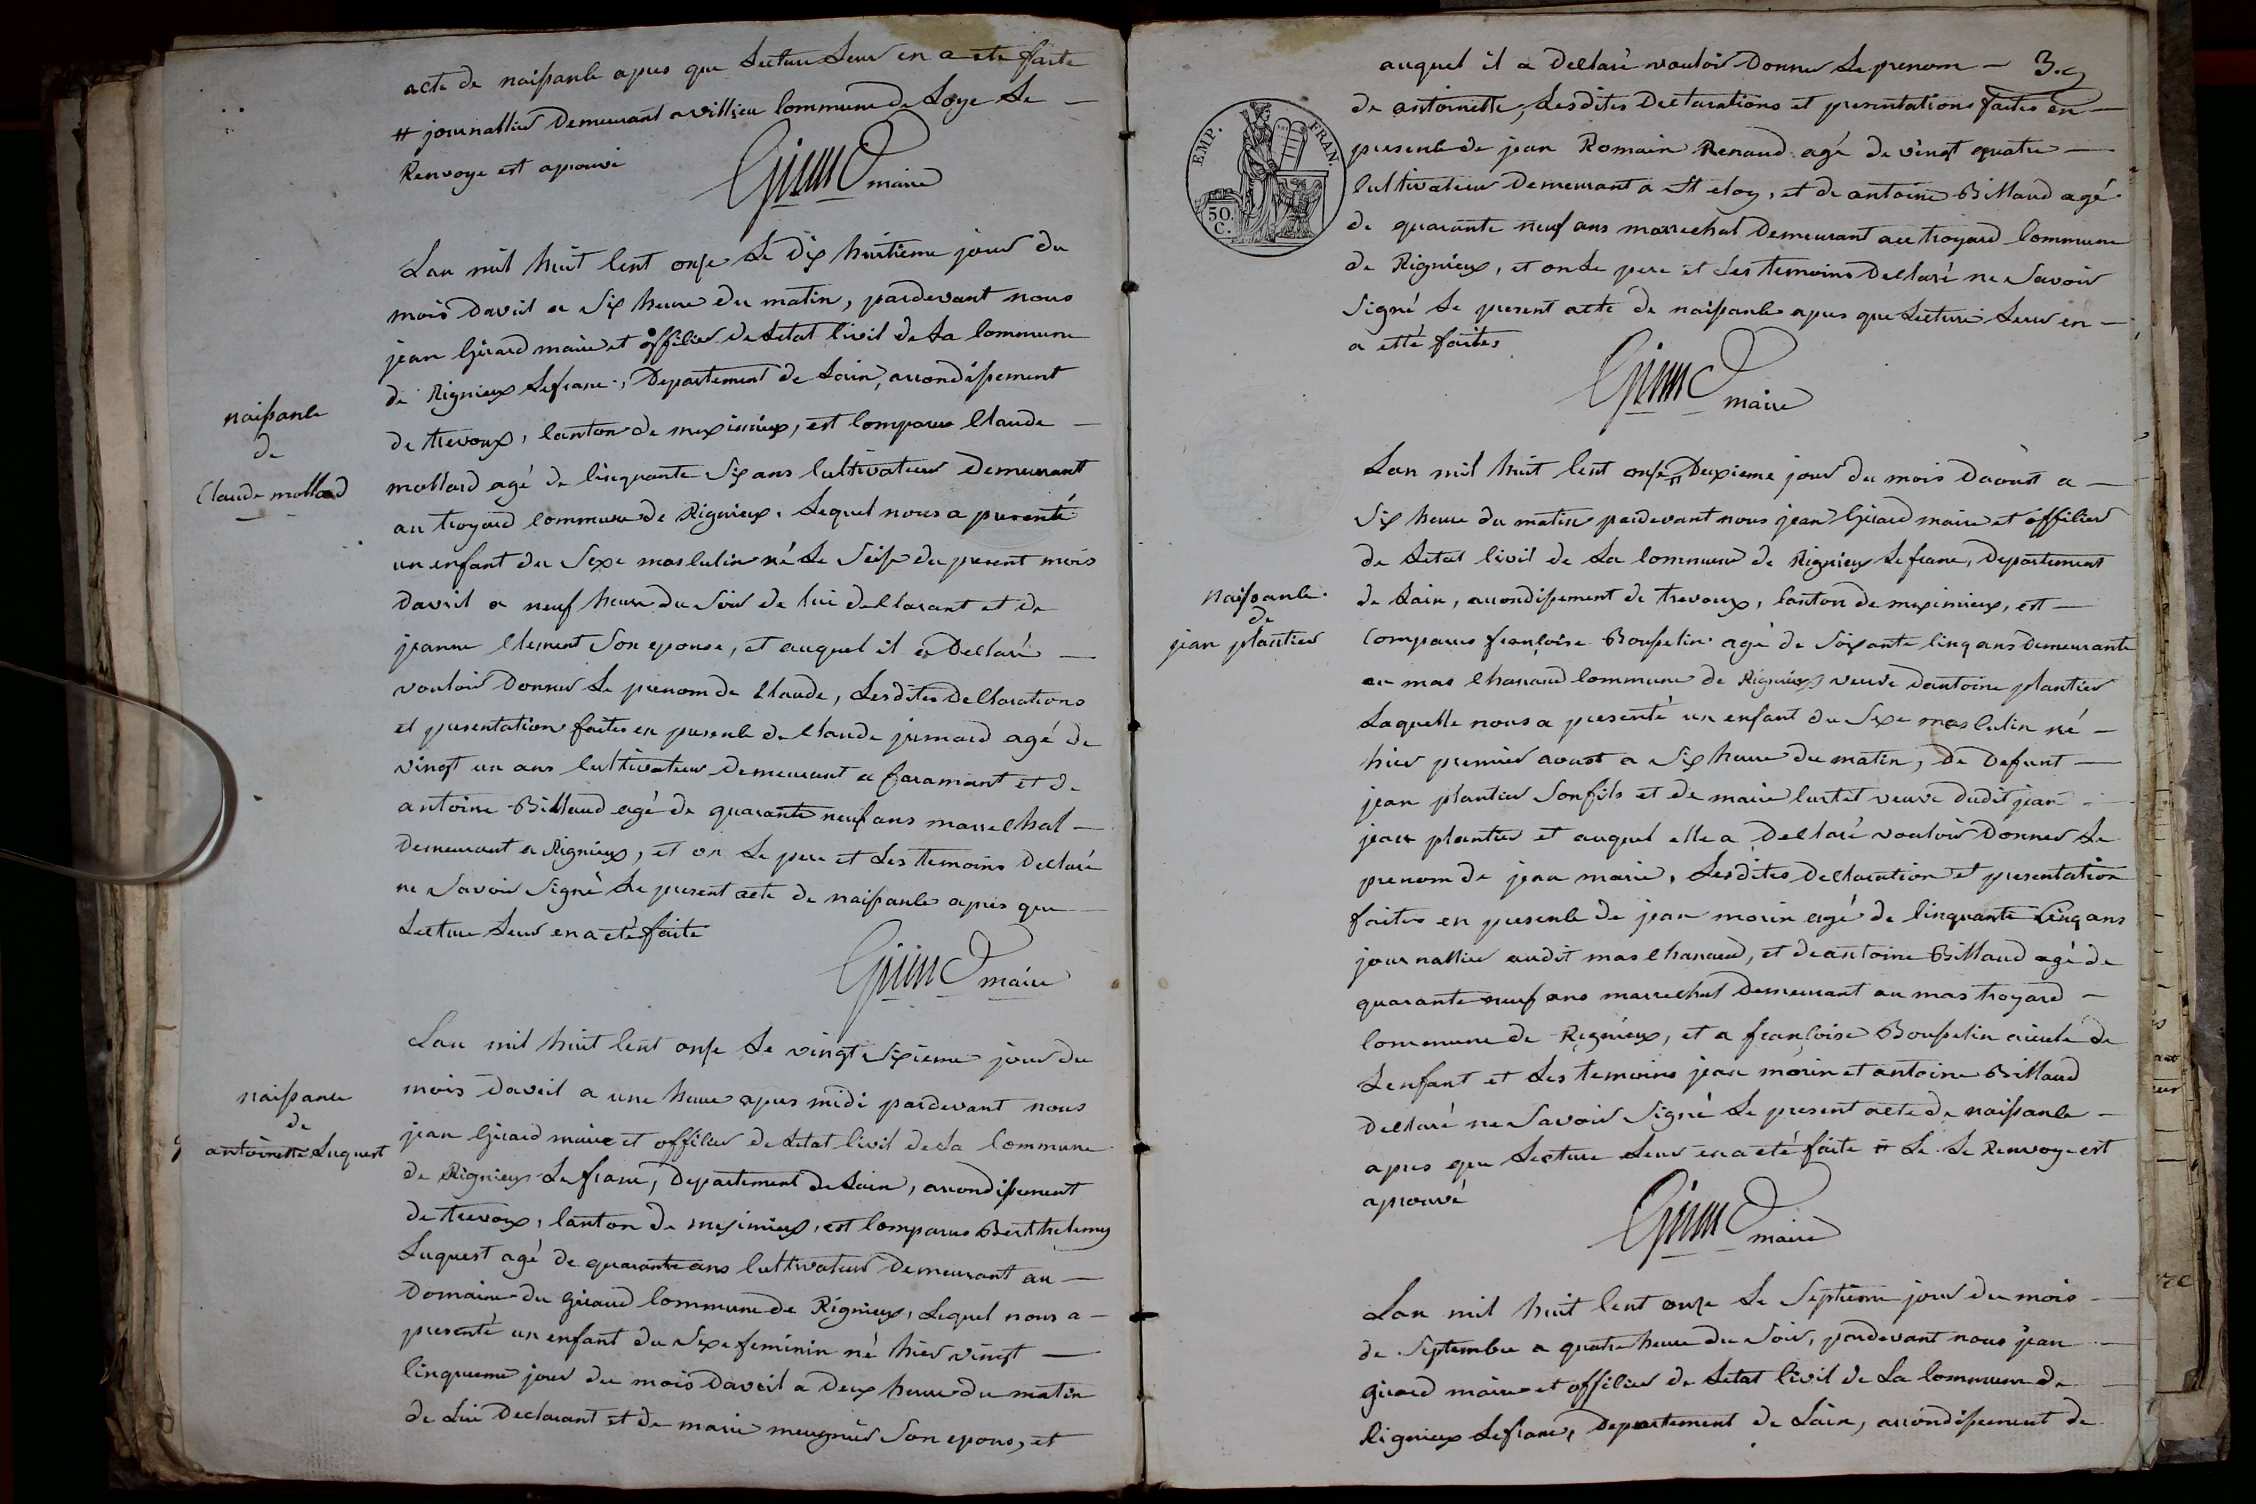 acte de naissance apres que Lecture Leur en a ete faite
# journallier Demeurant a villieu Commune de Loye Le
Renvoye est aprouvé
Girard maire
Lan mil huit Cent onze Le Dix huitieme jour du
mois Davril a Six heure du matin, pardevant nous
jean Girard maire et officier de Letat Civil de La Commune
de Rignieux Lefranc, Departement de Lain, arrondissement
naissance
de
Claude mollard
de trevoux, Canton de meximieux, est Comparus Claude
mollard agé de Cinquante Six ans Cultivateur Demeurant
au troyard Commune de Rignieux. Lequel nous a presenté
un enfant du Sexe masculin né Le Seize du present mois
Davril a neuf heure du Soir de lui declarant et de
jeanne Clement Son epouse, et auquel il a Declaré
vouloir Donner Le prenom de Claude, Lesdites Declarations
et presentation faites en presence de Claude jumard agé de
vingt un ans Cultivateur Demeurant a faramant et de
antoine Billaud agé de quarante neuf ans marrechal
Demeurant a Rignieux, et on Le pere et Les temoins Declaré
ne Savoir Signé Le present acte de naissance apres que
Lecture Leur en a eté faite
Girard maire
Lan mil huit Cent onze Le vingt Sixieme jour du
mois Davril a une heure apres midi pardevant nous
naissance
de
antoinette Luquest
jean Girard maire et officier de Letat Civil de La Commune
de Rignieux Lefranc, Departement de Lain, arrondissement
de trevoux, Canton de meximieux, est Comparus Berthelemy
Luquest agé de quarante ans Cultivateur Demeurant au
Domaine du Giraud Commune de Rignieux, Lequel nous a
presenté un enfant du Sexe feminin né hier vingt
Cinquieme jour du mois Davril a Deux heure du matin
de Lui Declarant et de marie meugnier Son epouse, et
auquel il a Declaré vouloir Donner Le prenom 3.
EMP. FRAN.
50. C.
de antoinette, Lesdites Declarations et presentations faites en
presence de jean Romain Renaud agé de vingt quatre
Cultivateur Demeurant a St eloy, et de antoine Billaud agé
de quarante neuf ans marrechal Demeurant au troyard Commune
de Rignieux, et on Le pere et Les temoins Declaré ne Savoir
Signé Le present acte de naissance apres que Lecture Leur en
a etté faites
Girard maire
Lan mil huit Cent onze # Deuxieme jour du mois Daoust a
Six heure du matin pardevant nous jean Girard maire et officier
de Letat Civil de La Commune de Rignieux Lefranc, Departement
naissance
de
jean plantier
de Lain, arrondissement de trevoux, Canton de meximieux, est
Comparus françoise Bousselin agé de Soixante Cinq ans Demeurante
au mas Chanaud Commune de Rignieux veuve dantoine plantier
Laquelle nous a presenté un enfant du Sexe masculin né
hier premier aoust a Six heure du matin, De Defunt
jean plantier Son fils et de marie Curtet veuve dudit jean
jean plantier et auquel elle a Declaré vouloir Donner Le
prenom de jean marie, Lesdites Declaration et presentation
faites en presence de jean morin agé de Cinquante Cinq ans
journallier audit mas Chanaud, et de antoine Billaud agé de
quarante neuf ans marrechal Demeurant au mas troyard
Commune de Rignieux, et a françoise Bousselin aieule de
Lenfant et Les temoins jean morin et antoine Billaud
Declaré ne Savoir Signé Le present acte de naissance
apres que Lecture Leur en a eté faite # Le Le Renvoye est
aprouvé
Girard maire
Lan mil huit Cent onze Le Septieme jour du mois
de Septembre a quatre heure du Soir, pardevant nous jean
Girard maire et officier de Letat Civil de La Commune de
Rignieux Lefranc, Departement de Lain, arrondissement de